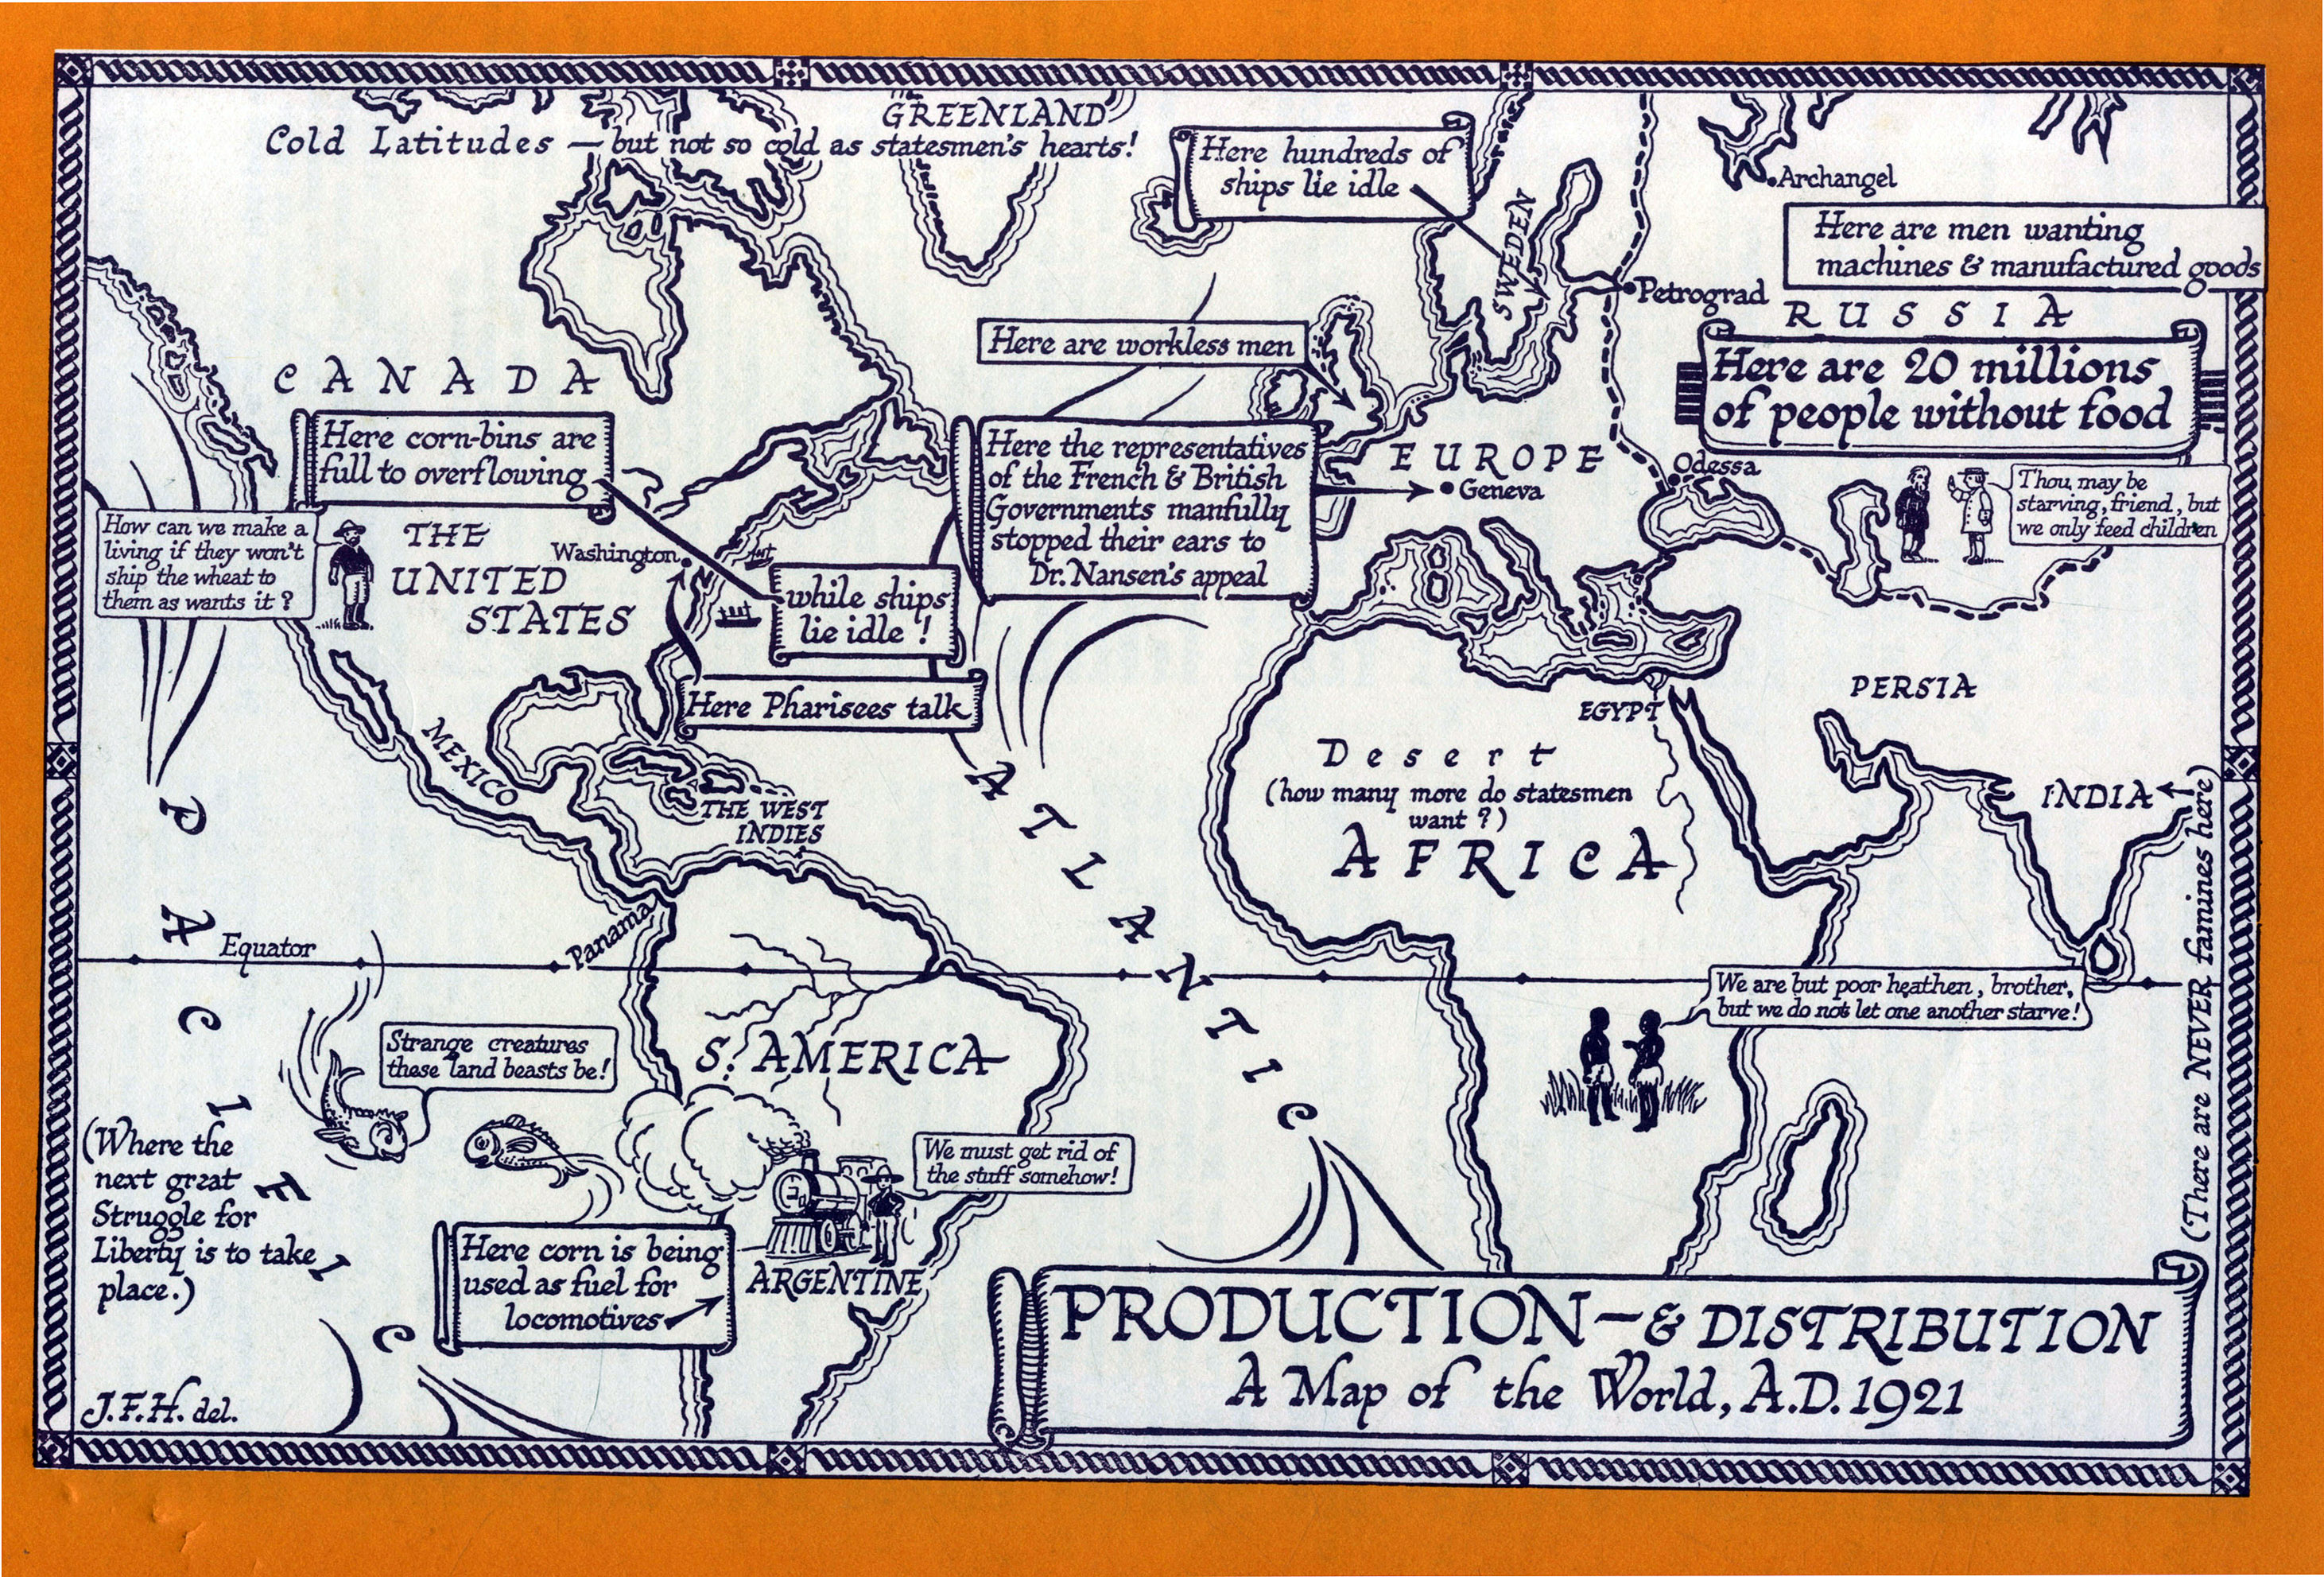 GREENLAND
Cold Latitudes — but not so cold as statesmen's hearts!
Here hundreds of
ships lie idle
SWEDEN
Archangel
Here are men wanting
machines & manufactured goods
Petrograd
RUSSIA
Here are 20 millions
of people without food
Thou may be
starving, friend, but
we only feed children
Here are workless men
CANADA
Here corn-bins are
full to overflowing
How can we make a
living if they won't
ship the wheat to
them as wants it?
THE
UNITED
STATES
Washington
while ships
lie idle!
Here Pharisees talk
Here the representatives
of the French & British
Governments manfully
stopped their ears to
Dr. Nansen's appeal
EUROPE
Geneva
Odessa
PERSIA
EGYPT
INDIA
(There are NEVER famines here)
Desert
(how many more do statesmen
want?)
AFRICA
MEXICO
THE WEST
INDIES
ATLANTIC
PACIFIC
Equator
Panama
Strange creatures
these land beasts be!
S. AMERICA
We are but poor heathen, brother,
but we do not let one another starve!
(Where the
next great
Struggle for
Liberty is to take
place.)
We must get rid of
the stuff somehow!
Here corn is being
used as fuel for
locomotives
ARGENTINE
PRODUCTION — & DISTRIBUTION
A Map of the World, A.D. 1921
J.F.H. del.